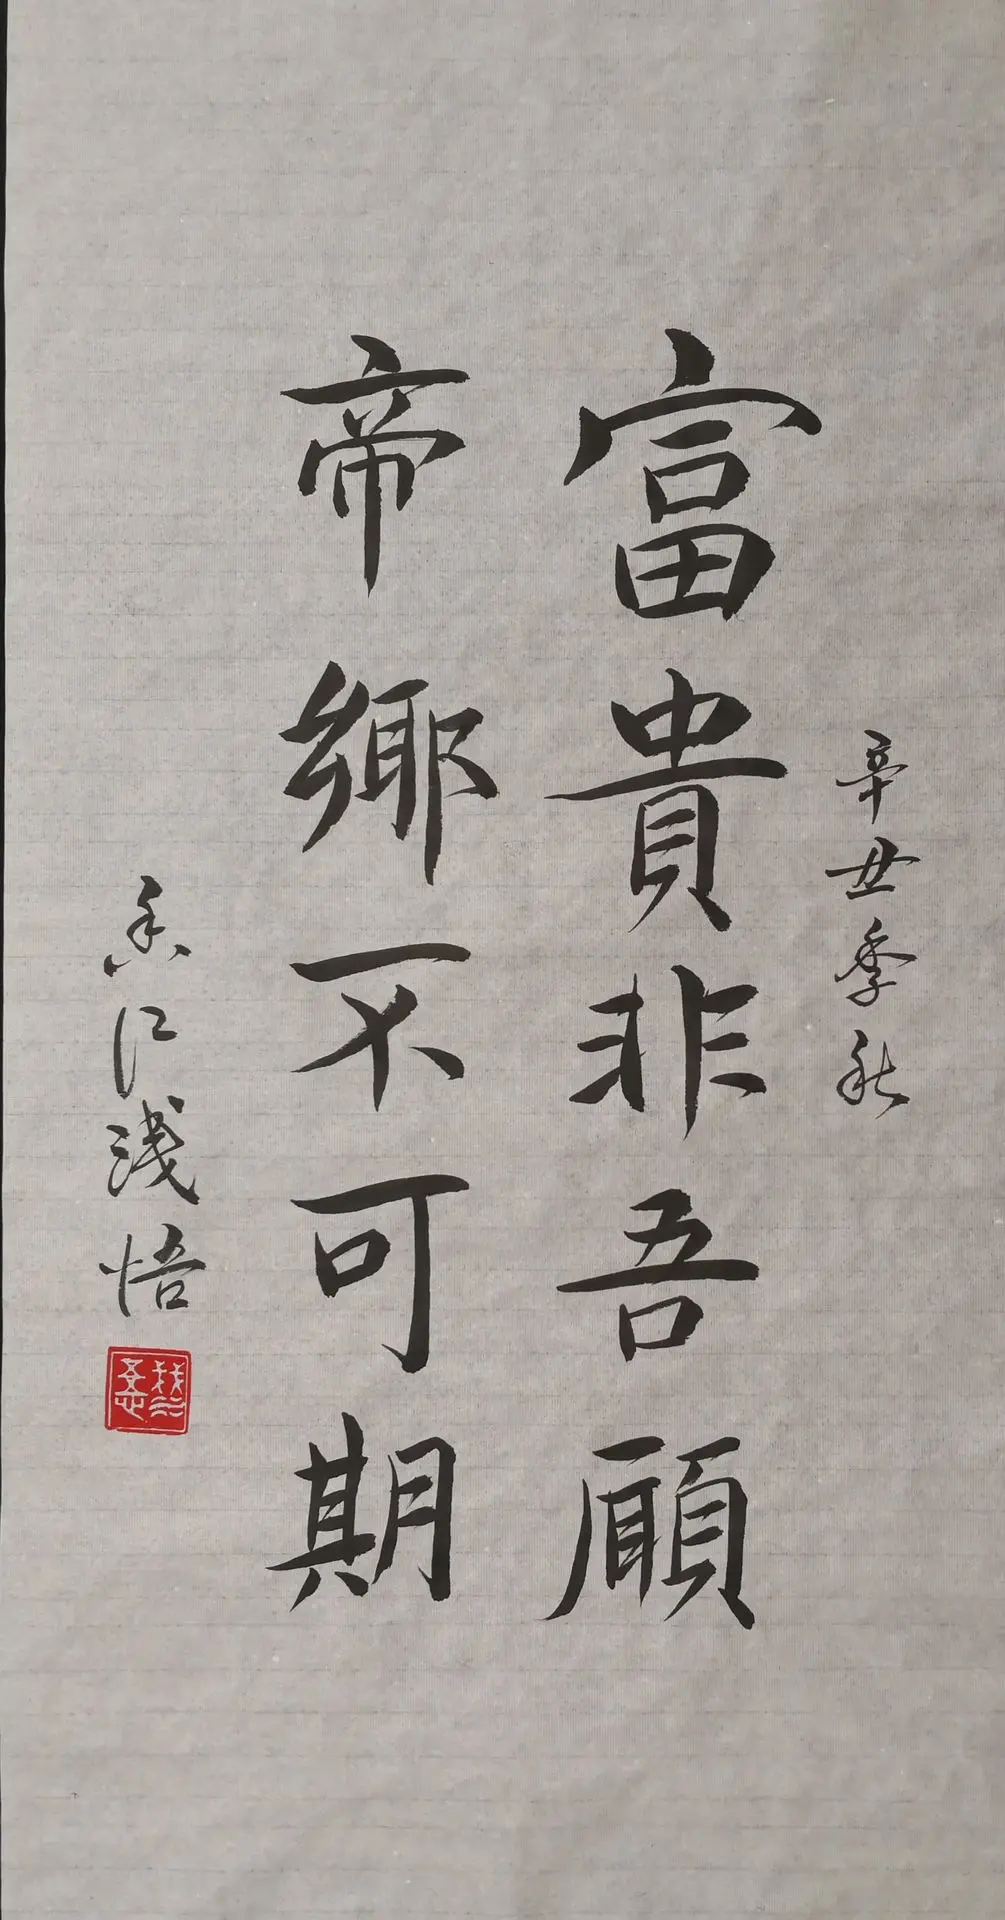 辛丑季秋
富貴非吾願
帝鄉不可期
香江淺悟